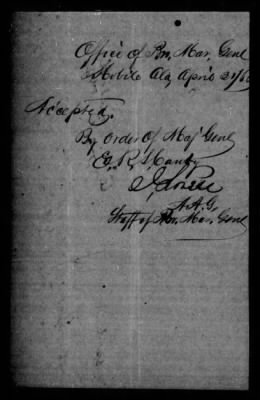 Office of Pro. Mar. Genl
Mobile Ala April 21/65
Accepted.
By order of Maj Genl
E. R. S. Canby
A. A. G.
Staff of Pro. Mar. Genl